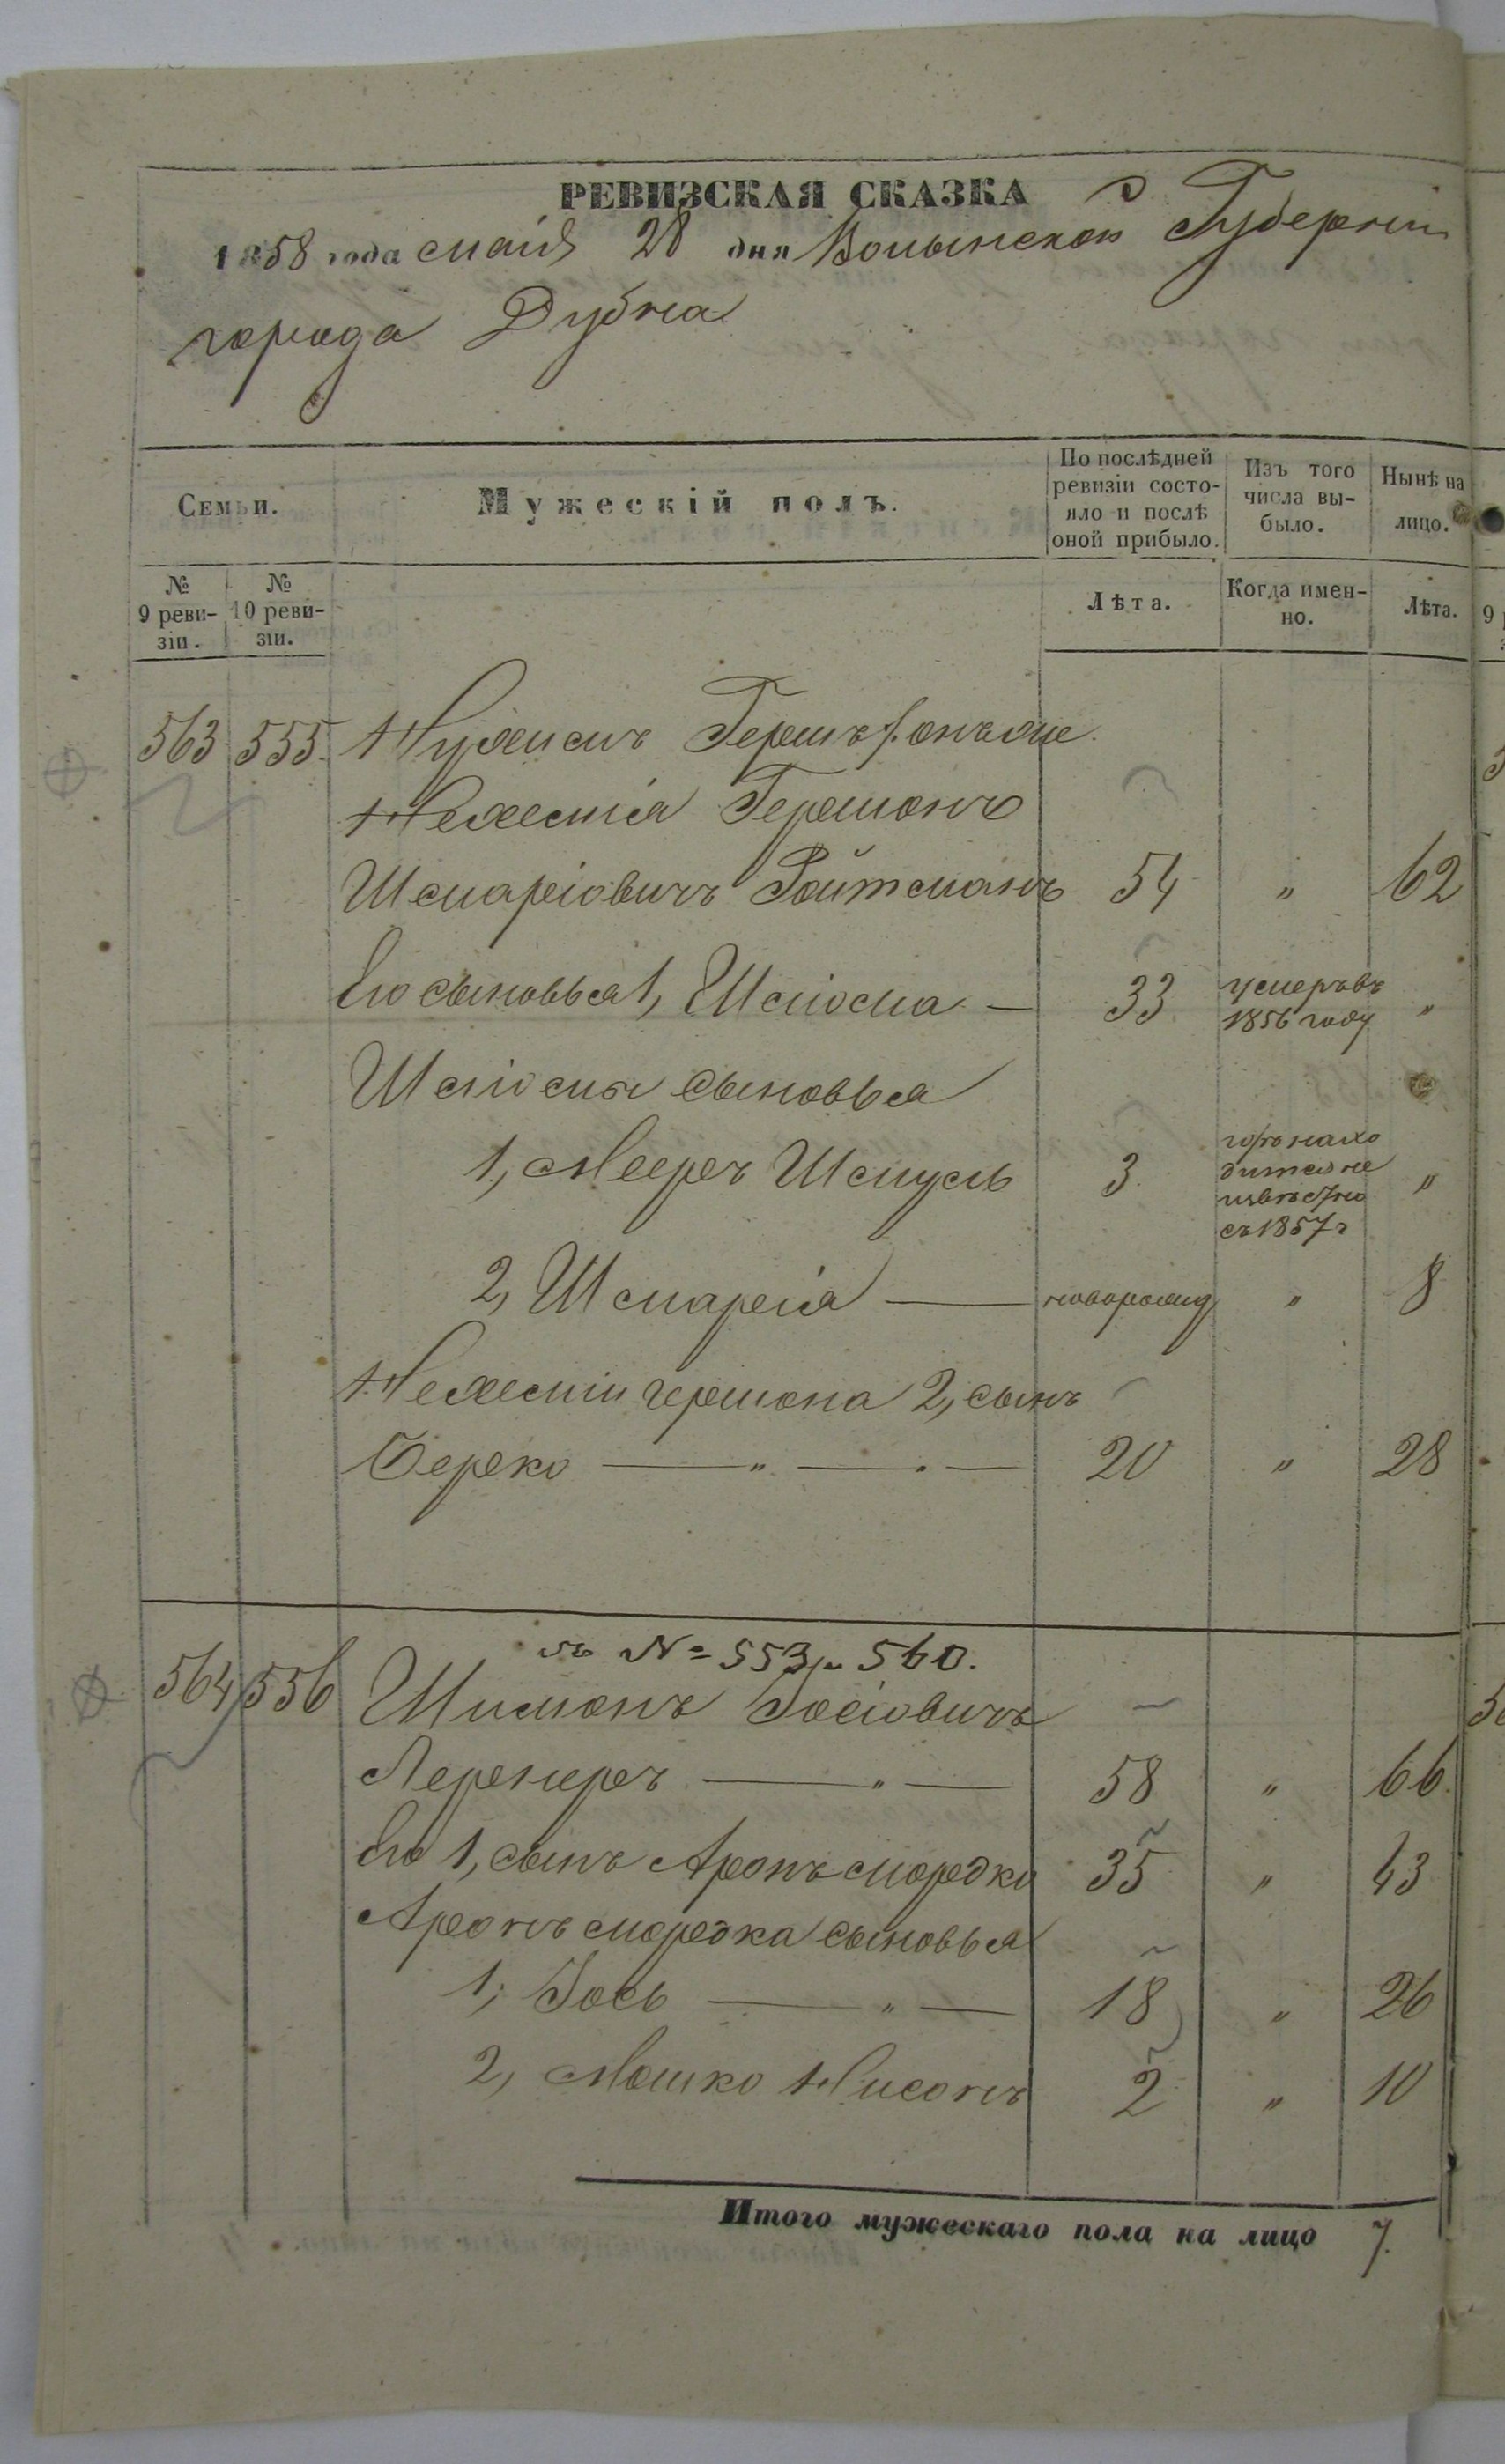 РЕВИЗСКАЯ СКАЗКА
1858 года маія 28 дня Волынской Губерніи
города Дубна
Семьи.
Мужескій полъ.
По послѣдней ревизіи состо-
яло и послѣ оной прибыло.
Изъ того числа вы-
было.
Нынѣ на лицо.
№ 9 реви-
зіи.
№ 10 реви-
зіи.
Лѣта.
Когда имен-
но.
Лѣта.
563 555
Нехемія Гершонъ
Шмаріовичъ Ройтманъ 54 " 62
Его сыновья 1, Шліома — 33 умеръ въ 1856 году "
Шліомы сыновья
1, Мееръ Шмуль 3 где нахо
дится не
извѣстно
съ 1857 г "
2, Шмарія — новорожд " 8
Нехеміи Гершона 2, сынъ
Берко — " — " — 20 " 28
№ 553 560.
564 556 Шимонъ Іосіовичъ
Лернеръ — " — 58 " 66
Его 1, сынъ Аронъ Мордко 35 " 43
Аронъ Мордка сыновья
1, Іось — " — 18 " 26
2, Мошко Нисонъ 2 " 10
Итого мужескаго пола на лицо 7.